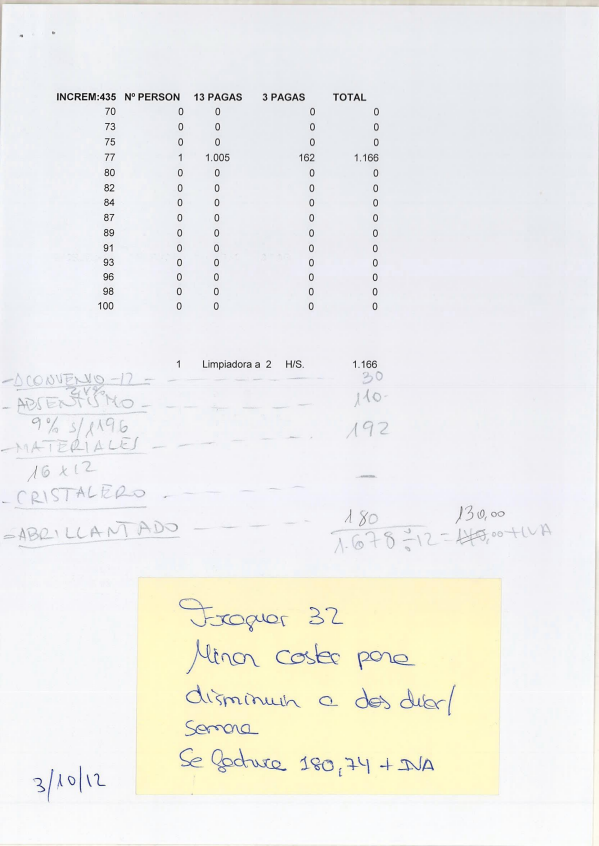 INCREM:435 Nº PERSON 13 PAGAS 3 PAGAS TOTAL
70 0 0 0 0
73 0 0 0 0
75 0 0 0 0
77 1 1.005 162 1.166
80 0 0 0 0
82 0 0 0 0
84 0 0 0 0
87 0 0 0 0
89 0 0 0 0
91 0 0 0 0
93 0 0 0 0
96 0 0 0 0
98 0 0 0 0
100 0 0 0 0
1 Limpiadora a 2 H/S. 1.166
CONVENIO-12 30
ABSENTISMO 110
9% s/1196
MATERIALES 192
16 x 12
CRISTALERO —
ABRILLANTADO 180
130,00
1.678 ÷ 12 = 140,00 + IVA
32
Mirar costes para
disminuir a dos dias/
semana
Se factura 180,74 + IVA
3/10/12